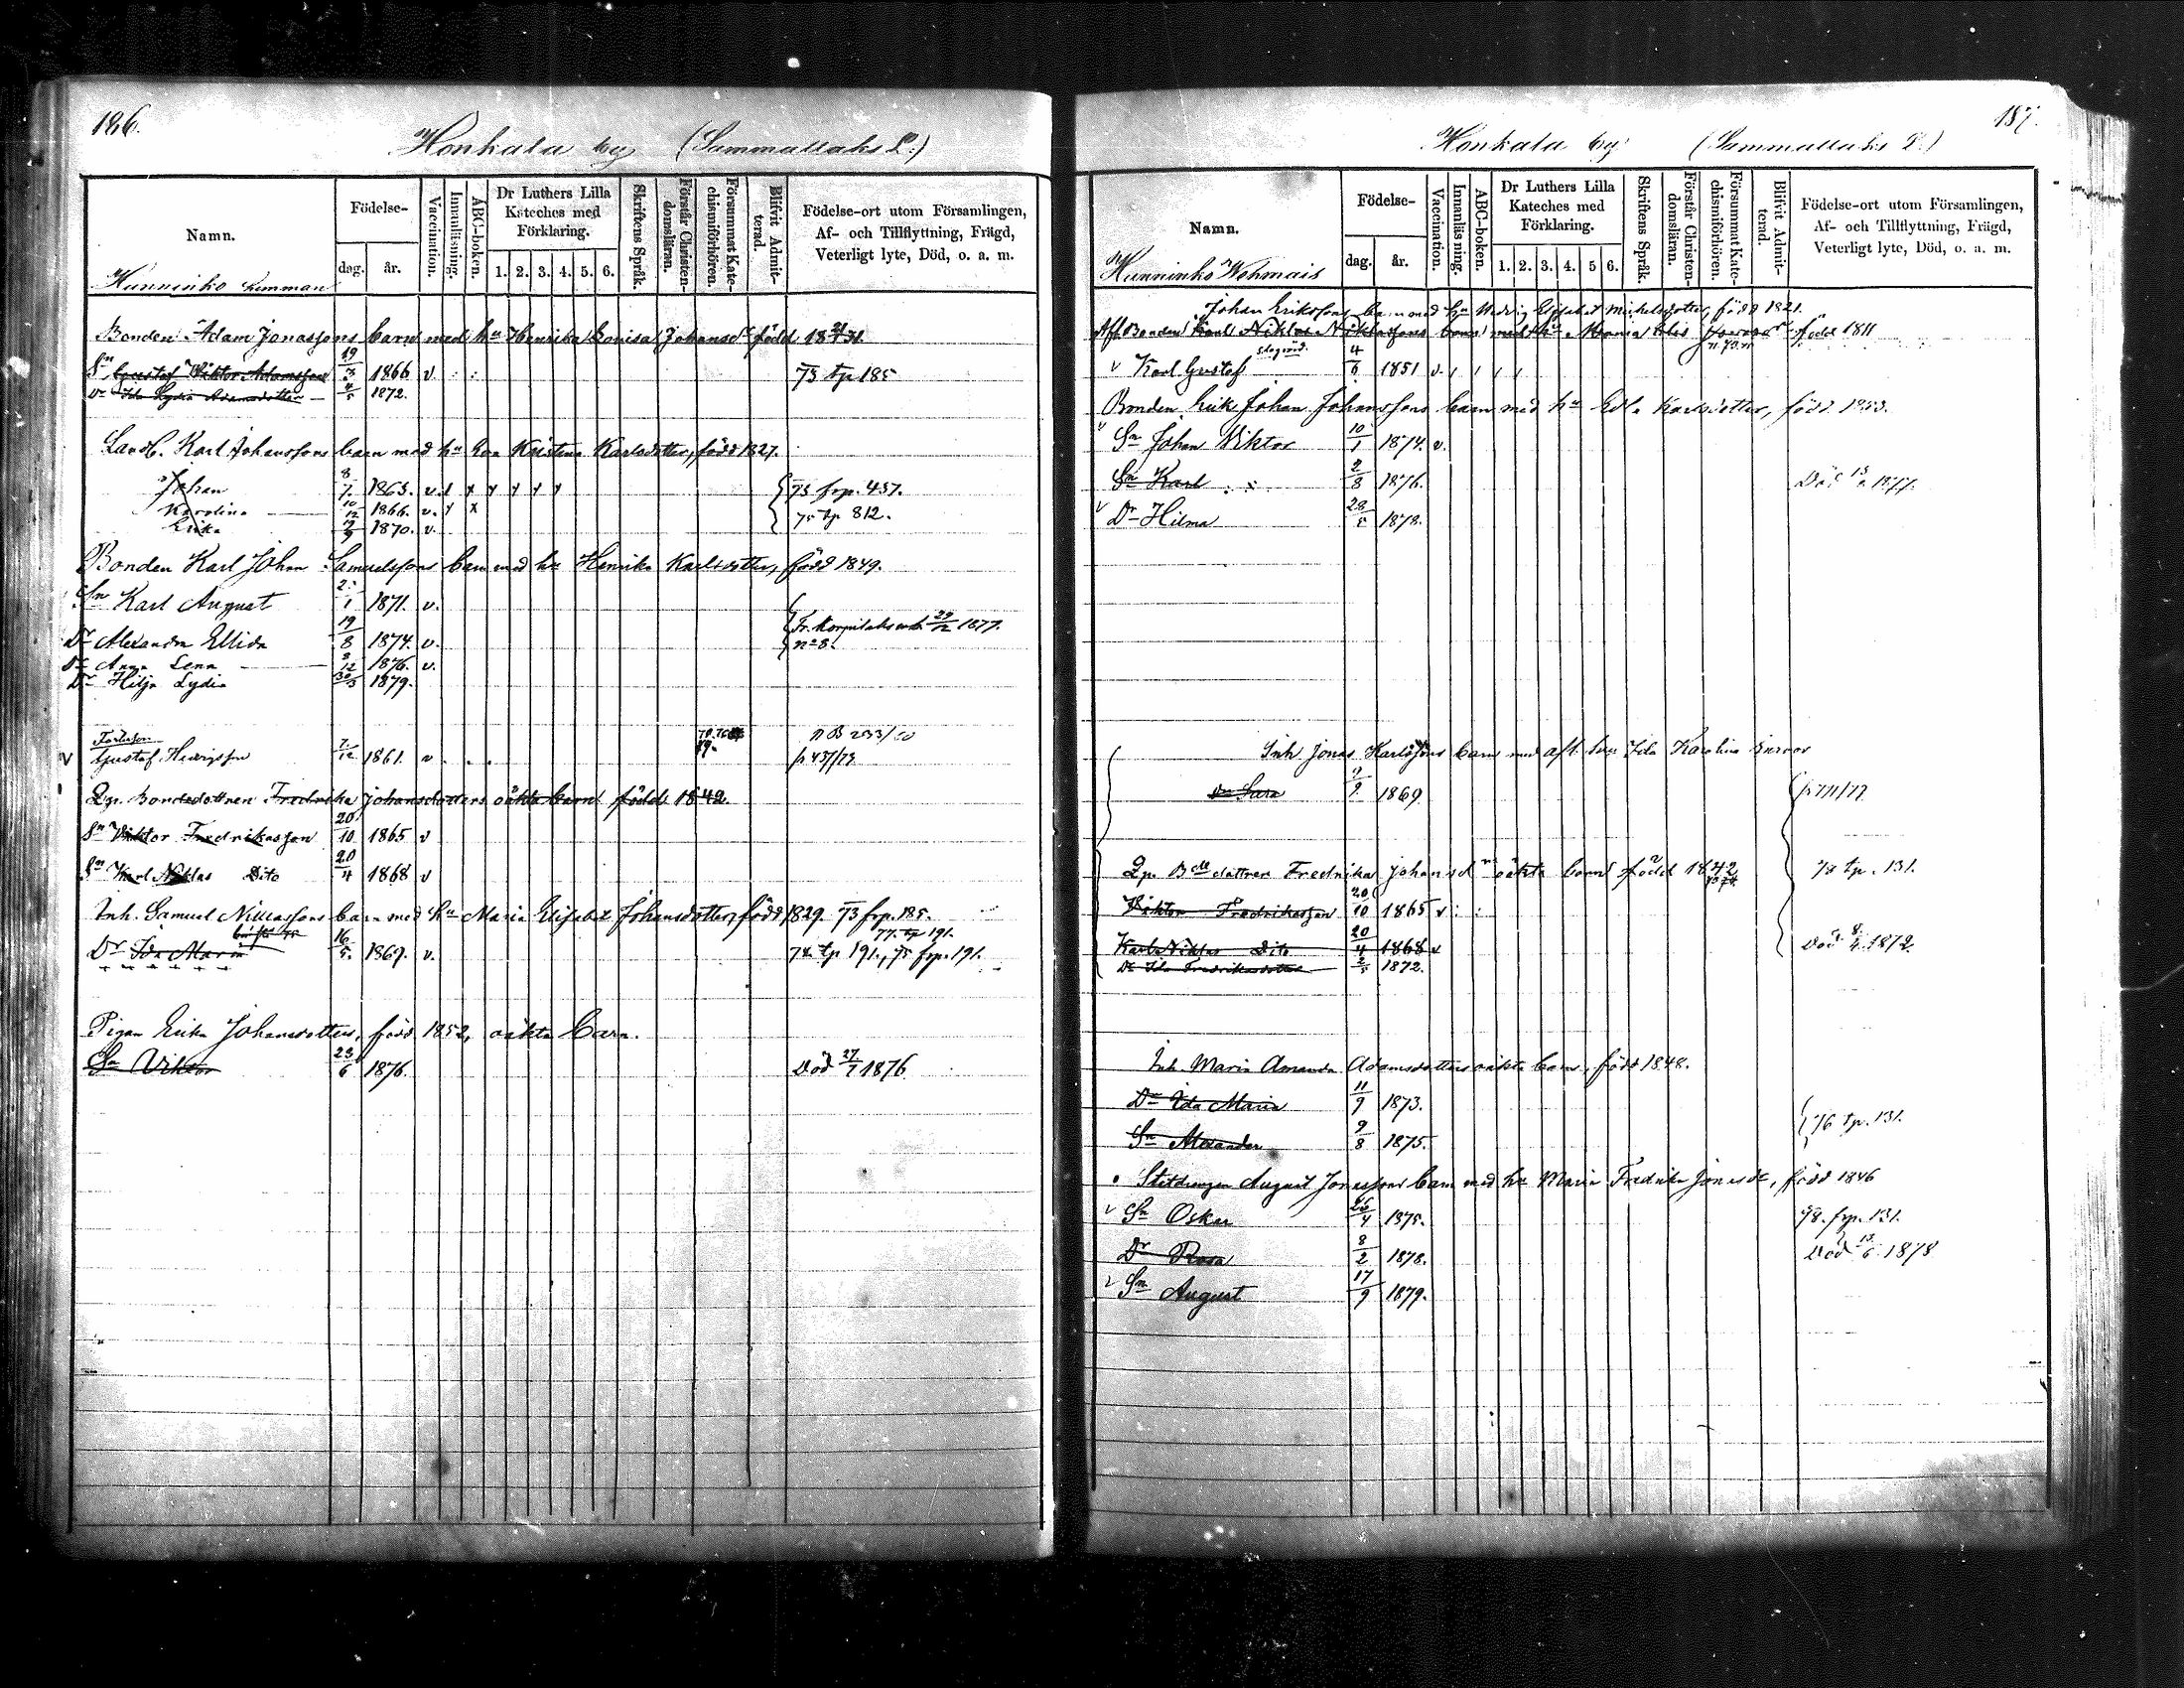 186.
Honkala by (Sammallaks L.)
Namn.
Födelse-
dag. år.
Vaccination.
Innanläsning.
ABC-boken.
Dr Luthers Lilla Kateches med Förklaring.
1. 2. 3. 4. 5. 6.
Skriftens Språk.
Förstår Christendomsläran.
Försummat Katechismiförhören.
Blifvit Admitterad.
Födelse-ort utom Församlingen, Af- och Tillflyttning, Frägd, Veterligt lyte, Död, o. a. m.
Hunninko hemman
Bonden Adam Jonassons barn med hu Henrika Lovisa Johansdr född 18 31.
Sn Gustaf Wiktor Adamsson 19/3 1866 v. 73 tp 185
Dr Ida Lydia Adamsdotter 4/5 1872.
Landb. Karl Johanssons barn med hu Eva Kristina Karlsdotter, född 1827.
Johan 8/7 1863. v. 73 frp. 437.
Karolina 10/12 1866. v. 75 tp 812.
Erika 1870. v.
Bonden Karl Johan Samuelssons barn med hu Henrika Karlsdotter, född 1849.
Sn Karl August 1871. v.
Dr Alexandra Ellida 19/8 1874. v. Fr. 29/12 1877. no 8.
Dr Anna Lena 8/12 1876. v.
Dr Hilja Lydia 30/3 1879.
Gustaf Henriksson 7/12 1861. v p 437/73
Qp. Bondedottren Fredrika Johansdotters oäkta barn född 1842.
Sn Wiktor Fredrikasson 20/10 1865 v
Sn Karl Niklas Dito 20/4 1868 v
Inh. Samuel Niklassons barn med hu Maria Elisabet Johansdotter, född 1829. 73 frp. 185.
77. tp 191.
Dr Ida Maria 16/5. 1869. v. 74 tp 191., 75 frp. 191.
Pigan Erika Johansdotters, född 1852, oäkta barn.
Sn Viktor 23/6 1876. Död 27/7 1876
187.
Honkala by (Sammallaks L.)
Namn.
Födelse-
dag. år.
Vaccination.
Innanläsning.
ABC-boken.
Dr Luthers Lilla Kateches med Förklaring.
1. 2. 3. 4. 5 6.
Skriftens Språk.
Förstår Christendomsläran.
Försummat Katechismiförhören.
Blifvit Admitterad.
Födelse-ort utom Församlingen, Af- och Tillflyttning, Frägd, Veterligt lyte, Död, o. a. m.
Hunninko Wähmais
Johan Erikssons barn med hu Hedvig Elisabet Mickelsdotter, född 1821.
Afl. Bonden Karl Niklas Niklassons barn med hu Maria född 1811
v Karl Gustaf 4/6 1851 v.
Bonden Erik Johan Johanssons barn med hu Edla Karlsdotter, född 1853.
v Sn Johan Wiktor 10/1 1874. v.
Sn Karl 2/8 1876. Död 1877.
v Dr Hilma 28/5 1878.
Inh Jonas Karlssons barn med afl. hu Ida Karolina
Dr Sara 1869 p 711/77
Qp. Bde dottren Fredrika Johansdrs oäkta barn född 1842 78 tp. 131.
Wiktor Fredrikasson 20/10 1865 v
Karl Niklas Dito 20/4 1868 v Död 1872
Dr Ida Fredrikasdotter 2/5 1872.
Inh. Maria Amanda Adamsdotters oäkta barn, född 1848.
Dr Ida Maria 11/9 1873.
Sn Alexander 9/8 1875. 76 tp. 131.
Statdrengen August Jonassons barn med hu Maria Fredrika Jonasdr, född 1846
v Sn Oskar 1875. 78. frp. 131.
Dr Rosa 8/2 1878. Död 13/6 1878
v Sn August 17/9 1879.